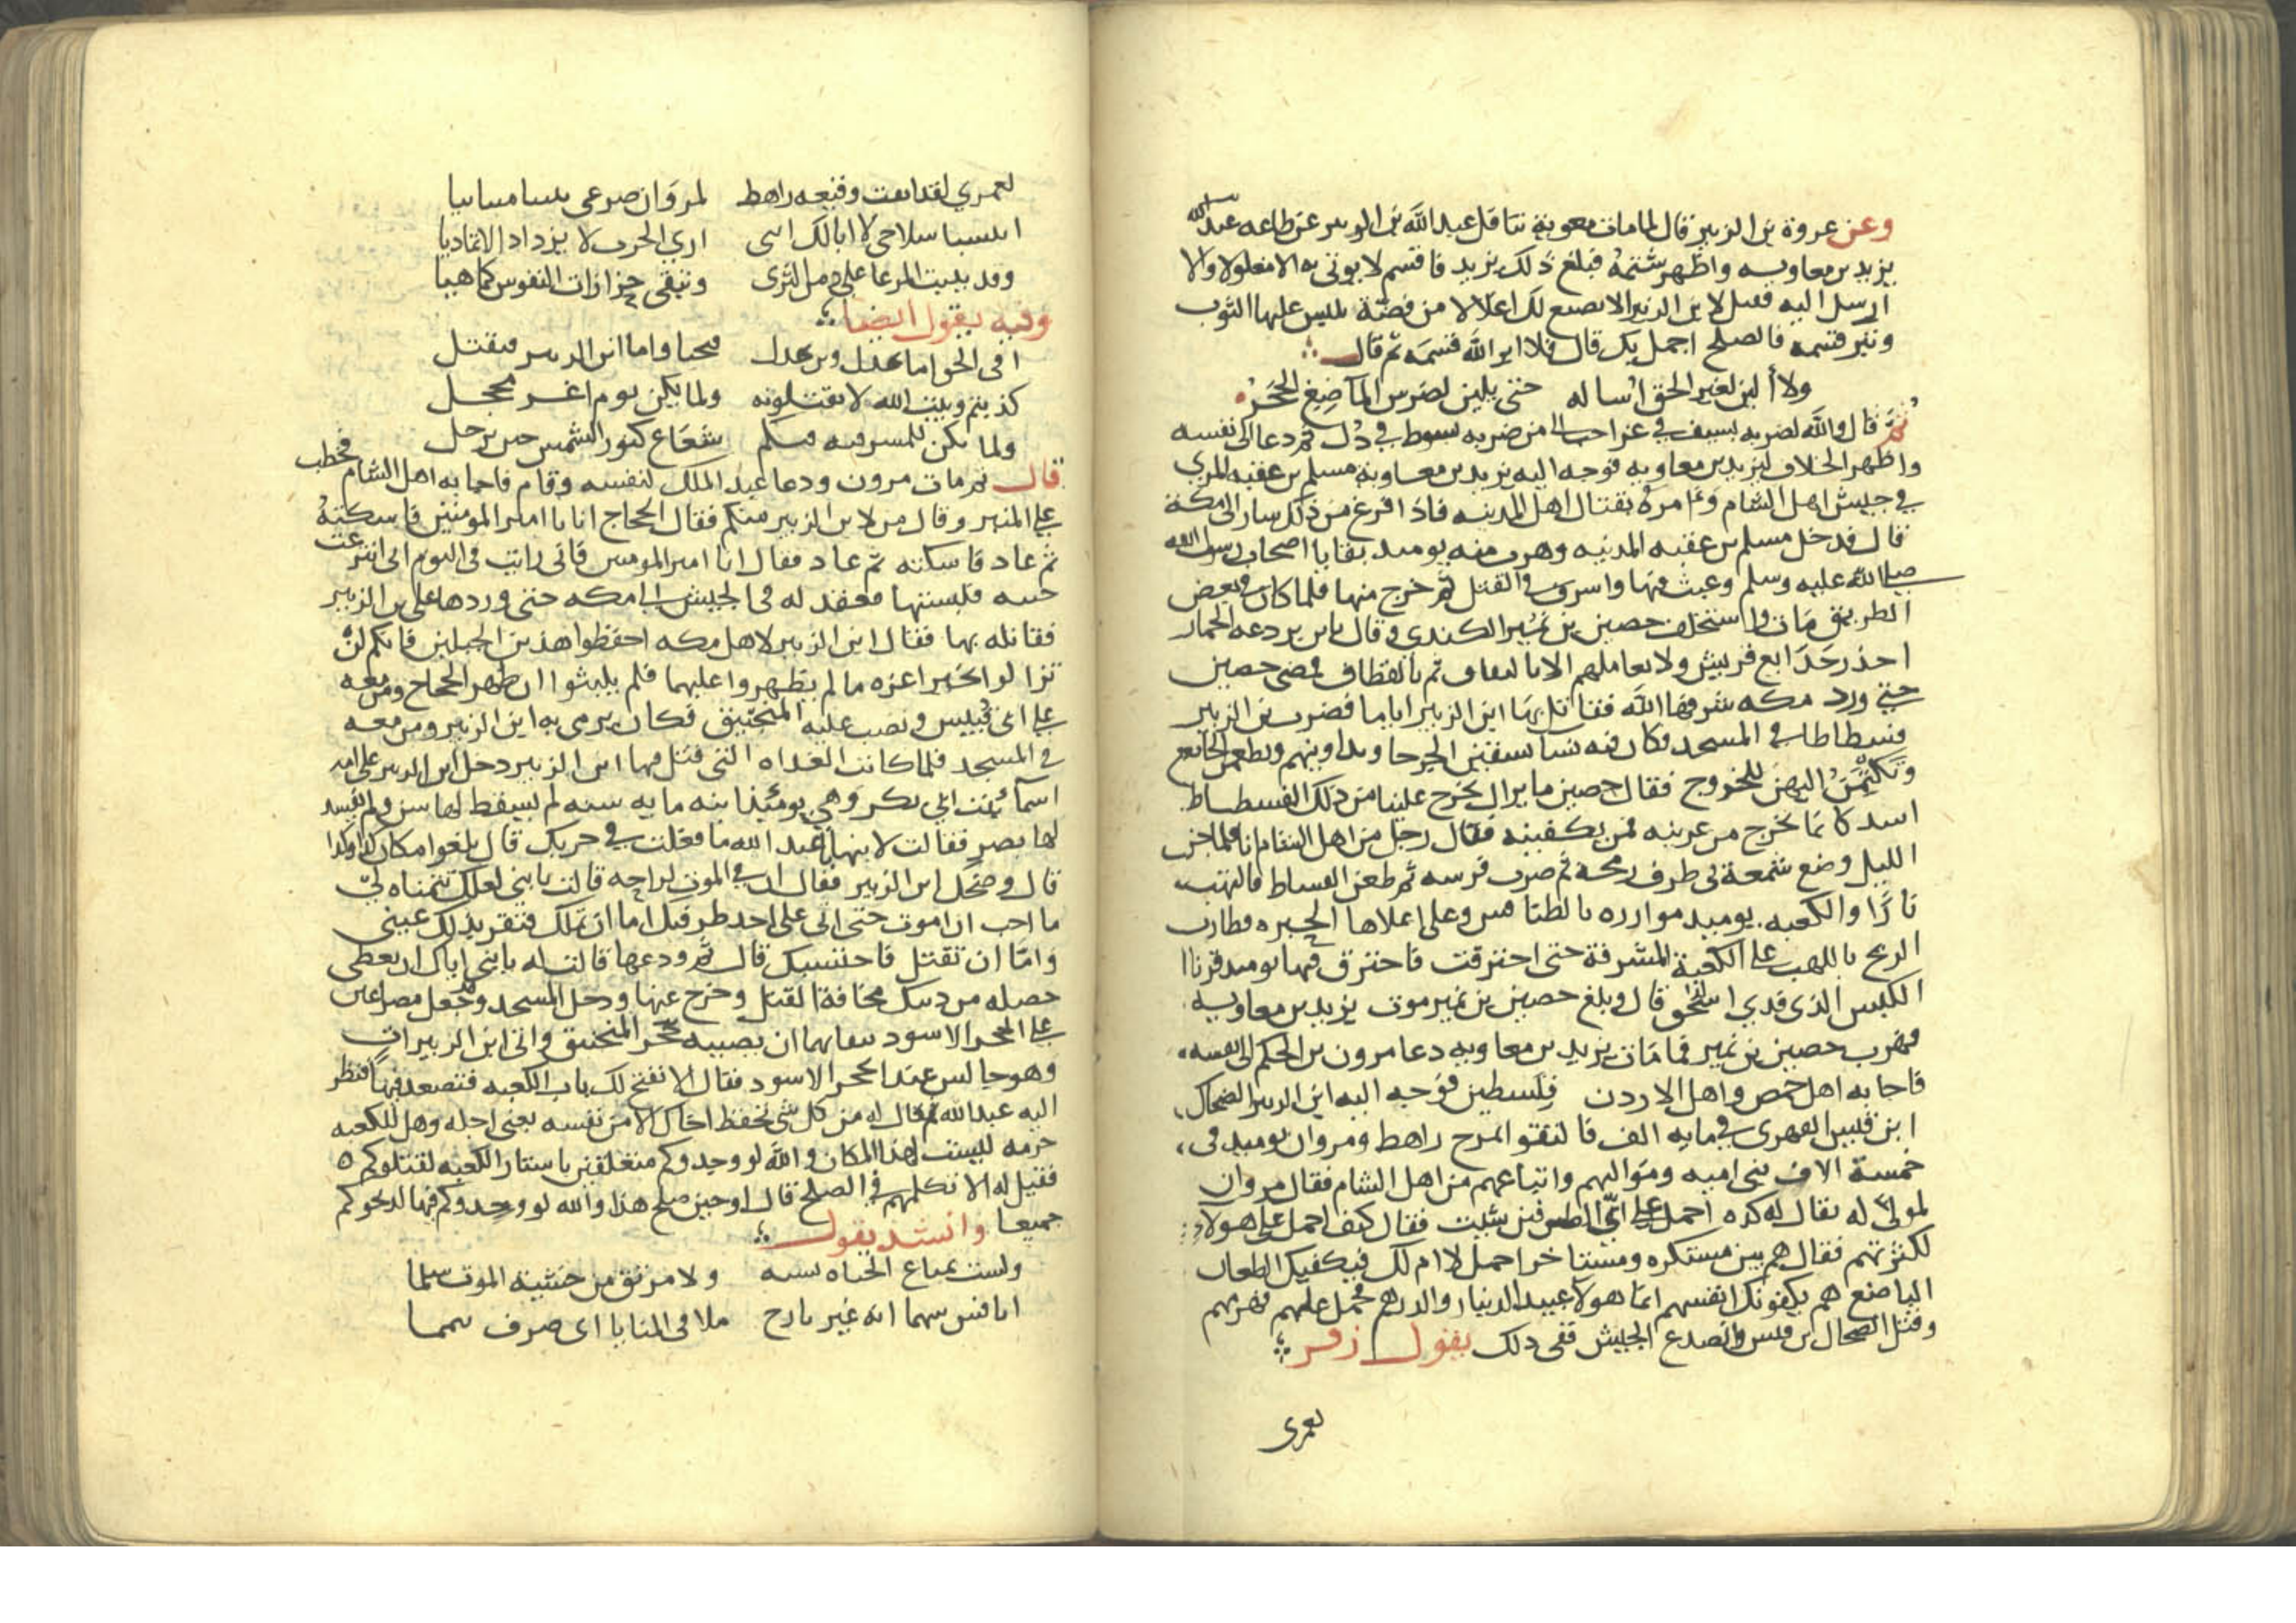 وعن عروة بن الزبير قال لما مات معوية تثاقل عبد الله بن الزبير عن طاعه عبد الله
يزيد بن معاويه واظهر شتمه فبلغ ذلك يزيد فاقسم لا يوتى به الا مغلولا والا
ارسل اليه فقيل لابن الزبير الا نصنع لك اغلالا من فضة تلبس عليها الثوب
وتبر قسمه فالصلح اجمل بك قال فلا ابر الله قسمه ثم قال
ولا ألين لغير الحق اساله حتى يلين لضرس الماضغ الحجر
ثم قال والله لضربه بسيف في عز احب الي من ضربه بسوط في ذل ثم دعا الى نفسه
واظهر الخلاف ليزيد بن معاويه فوجه اليه يزيد بن معاوية مسلم بن عقبه المري
في جيش اهل الشام وامره بقتال اهل المدينه فاذا فرغ من ذلك سار الى مكة
قال فدخل مسلم بن عقبه المدينه وهرب منه يوميد بقايا اصحاب رسول الله
صلى الله عليه وسلم وعبث فيها واسرف في القتل ثم خرج منها فلما كان في بعض
الطريق مات واستخلف حصين بن نمير الكندي وقال يابن بردعه الحمار
احذر خدايع قريش ولا تعاملهم الا بالثقاف ثم بالقطاف فمضى حصين
حتى ورد مكه شرفها الله فقاتل بها ابن الزبير اياما فضرب بن الزبير
فسطاطا في المسجد فكان فيه نسا يسقين الجرحا ويداوينهم ويطعمن الجايع
اليهن للخروج فقال حصين ما يزال يخرج علينا من ذلك الفسطاط
اسد كانما يخرج من عرينه فمن يكفينه فقال رجل من اهل الشام انا فلما جن
الليل وضع شمعة في طرف رمحه ثم ضرب فرسه ثم طعن الفسطاط فالتهب
نارًا والكعبه يوميد موازره بالطنافس وعلى اعلاها الحبره فطارت
الريح باللهب على الكعبة المشرفة حتى احترقت فاحترق فيها يوميد قرنا
الكبش الذي فدي اسحق قال وبلغ حصين بن نمير موت يزيد بن معاويه
فهرب حصين بن نمير فلما مات يزيد بن معاويه دعا مرون بن الحكم الى نفسه
فاجابه اهل حمص واهل الاردن فلسطين فوجه اليه ابن الزبير الضحاك
ابن قيس الفهري في مايه الف فالتقوا بمرج راهط ومروان يوميد في
خمسة الاف بني اميه ومواليهم واتباعهم من اهل الشام فقال مروان
لمولى له يقال له كره احمل على اي الطرفين شيت فقال كيف احمل على هولاء
لكثرتهم فقال هم بين مستكره ومستاجر احمل لا ام لك فيكفيك الطعان
هم يكفونك انفسهم انما هولا عبيد الدينار والدرهم فحمل عليهم فهزمهم
وقتل الضحاك بن قيس وانصدع الجيش ففي ذلك يقول زفر
لعمري
لعمري لقد ابقت وقيعه راهط لمروان صرعى
سلاحي لا ابا لك انني اري الحرب لا يزداد الا تماديا
وقد ينبت المرعا على دمن الثرى وتبقى حزازات النفوس كما هيا
وفيه يقول ايضا
افى الحق اما بحدل وبن بحدل فيحيا واما ابن الزبير فيقتل
كذبتم وبيت الله لا تقتلونه ولما يكن يوم اغر محجل
ولما يكن للمشرفيه فيكم شعاع كنور الشمس حين ترحل
قال ثم مات مرون ودعا عبد الملك لنفسه وقام فاجابه اهل الشام فخطب
على المنبر وقال من لابن الزبير منكم فقال الحجاج انا يا امير المومنين فاسكته
ثم عاد فاسكته ثم عاد فقال انا امير المومنين فاني رايت في النوم اني انتزعت
جبته فلبستها فعقد له في الجيش الى مكه حتى وردها على بن الزبير
فقاتله بها فقال ابن الزبير لاهل مكه احفظوا هذين الجبلين فانكم لن
تزالوا بخير اعزه ما لم يظهروا عليهما فلم يلبثوا ان ظهر الحجاج ومن معه
على ابي قبيس ونصب عليه المنجنيق فكان يرمي به ابن الزبير ومن معه
في المسجد فلما كانت الغداه التي قتل فيها ابن الزبير دخل ابن الزبير على امه
اسما بنت ابي بكر وهي يومئذ ابنه مايه سنه لم يسقط لها سن ولم يفسد
لها بصر فقالت لابنها عبد الله ما فعلت في حربك قال بلغوا مكان كذا وكذا
قال وضحك ابن الزبير فقال ان في الموت لراحه قالت يابني لعلك تتمناه لي
ما احب ان اموت حتى اتي على احد طرفيك اما ان تملك فتقر بذلك عيني
واما ان تقتل فاحتسبك قال ثم ودعها قالت له يابني اياك ان تعطي
خصله من دينك مخافة القتل وخرج عنها ودخل المسجد وجعل مصراعين
على الحجر الاسود ان يصيبه حجر المنجنيق واتى ابن الزبير ات
وهو جالس عند الحجر الاسود فقال الا نفتح لك باب الكعبه فتصعد فيها فنظر
اليه عبد الله ثم قال له من كل شي تحفظ اخاك الا من نفسه يعني اجله وهل للكعبه
حرمه ليست لهذا المكان والله لو وجدوكم متعلقين باستار الكعبه لقتلوكم
فقيل له الا تكلمهم في الصلح قال اوحين صلح هذا والله لو وجدوكم فيها لذبحوكم
جميعا وانشد يقول
ولست بمبتاع الحياه بسبه ولا مرتق من خشية الموت سلما
انافس سهما انه غير بارح ملاقى المنايا اى صرف تيمما